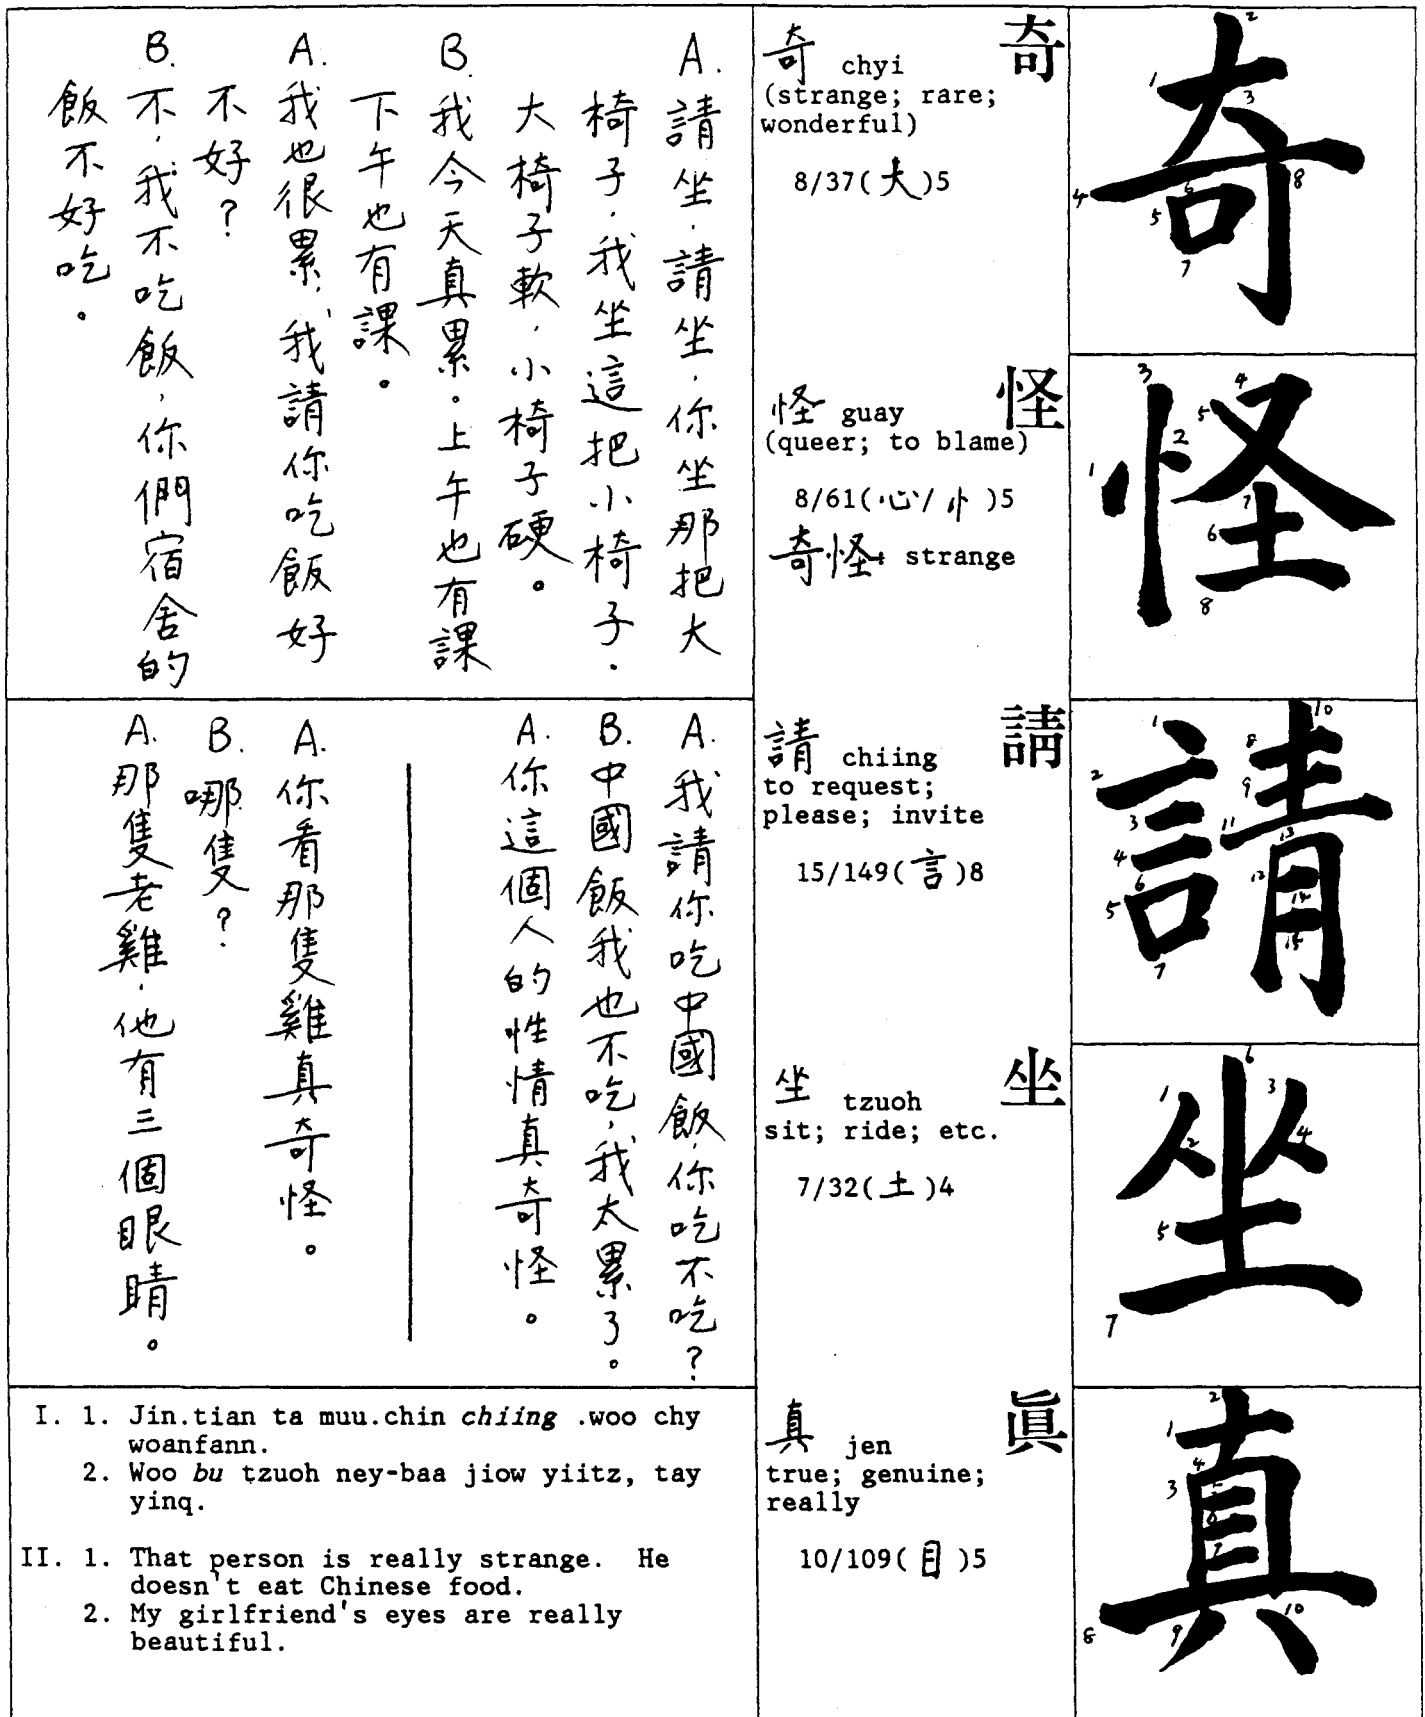 A. 請坐，請坐，你坐那把大
椅子，我坐這把小椅子．
大椅子軟，小椅子硬。
B. 我今天真累。上午也有課
下午也有課。
A. 我也很累，我請你吃飯好
不好？
B. 不，我不吃飯，你們宿舍的
飯不好吃。
A. 我請你吃中國飯，你吃不吃？
B. 中國飯我也不吃，我太累了。
A. 你這個人的性情真奇怪。
A. 你看那隻雞真奇怪。
B. 哪隻？
A. 那隻老雞，他有三個眼睛。
I. 1. Jin.tian ta muu.chin chiing .woo chy
woanfann.
2. Woo bu tzuoh ney-baa jiow yiitz, tay
yinq.
II. 1. That person is really strange. He
doesn't eat Chinese food.
2. My girlfriend's eyes are really
beautiful.
奇 chyi 奇
(strange; rare;
wonderful)
8/37(大)5
怪 guay 怪
(queer; to blame)
8/61(心/忄)5
奇怪: strange
請 chiing 請
to request;
please; invite
15/149(言)8
坐 tzuoh 坐
sit; ride; etc.
7/32(土)4
真 jen 眞
true; genuine;
really
10/109(目)5
奇
1 2 3 4 5 6 7 8
怪
1 2 3 4 5 6 7 8
請
1 2 3 4 5 6 7 8 9 10 11 12 13 14 15
坐
1 2 3 4 5 6 7
真
1 2 3 4 5 6 7 8 9 10